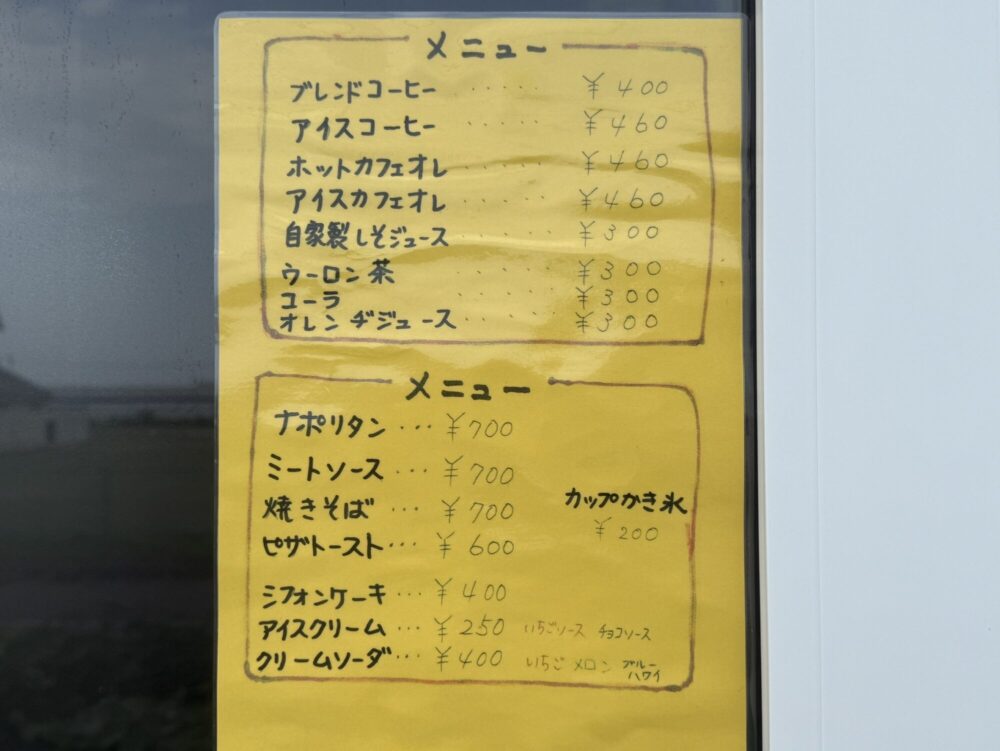 メニュー
ブレンドコーヒー ‥‥‥ ¥400
アイスコーヒー ‥‥‥ ¥460
ホットカフェオレ ‥‥‥ ¥460
アイスカフェオレ ‥‥‥ ¥460
自家製しそジュース ‥‥‥ ¥300
ウーロン茶 ‥‥‥ ¥300
コーラ ‥‥‥ ¥300
オレンヂジュース ‥‥‥ ¥300
メニュー
ナポリタン ‥‥ ¥700
ミートソース ‥‥ ¥700
焼きそば ‥‥ ¥700
ピザトースト ‥‥ ¥600
カップかき氷
¥200
シフォンケーキ ‥‥ ¥400
アイスクリーム ‥‥ ¥250 いちごソース チョコソース
クリームソーダ ‥‥ ¥400 いちご メロン ブルーハワイ